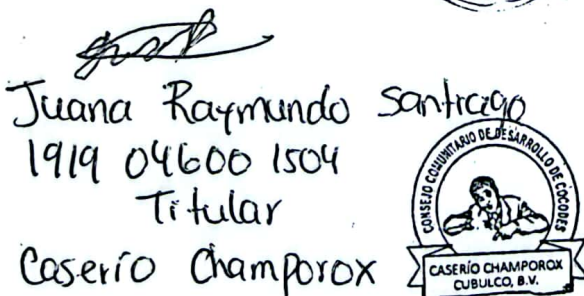 Juana Raymundo Santiago
1919 04600 1504
Titular
Caserío Champorox
CONSEJO COMUNITARIO DE DESARROLLO DE COCODES
CASERÍO CHAMPOROX
CUBULCO, B.V.